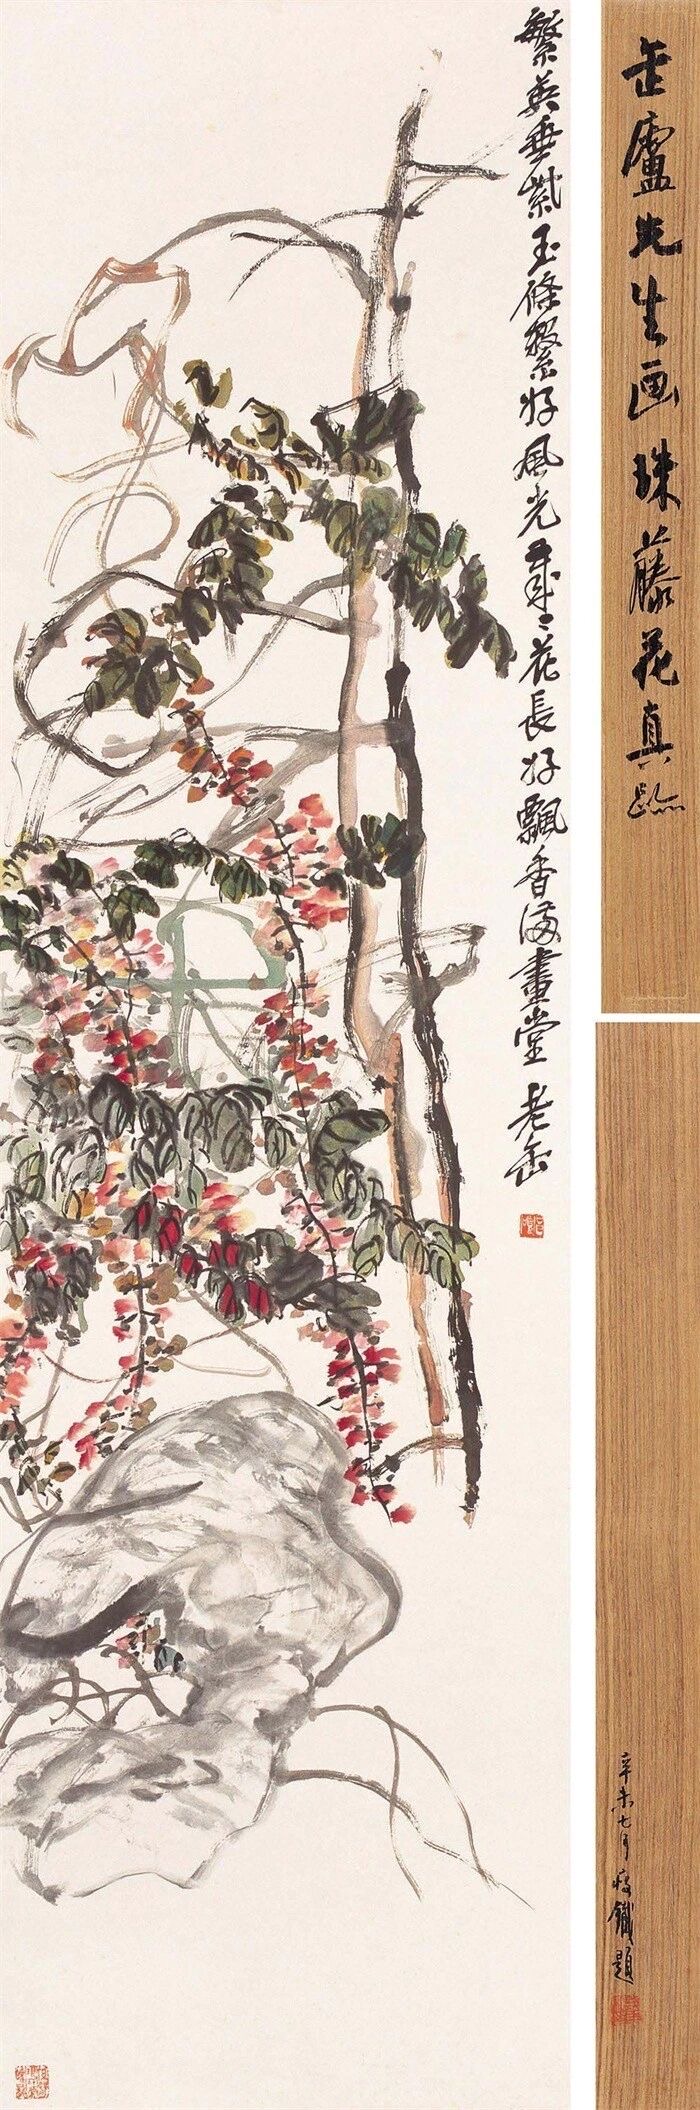 繁英垂紫玉條繫好風光歲〻花長好飄香滿畫堂 老缶
缶廬先生画珠藤花真跡
辛未七月 瘦鐵題